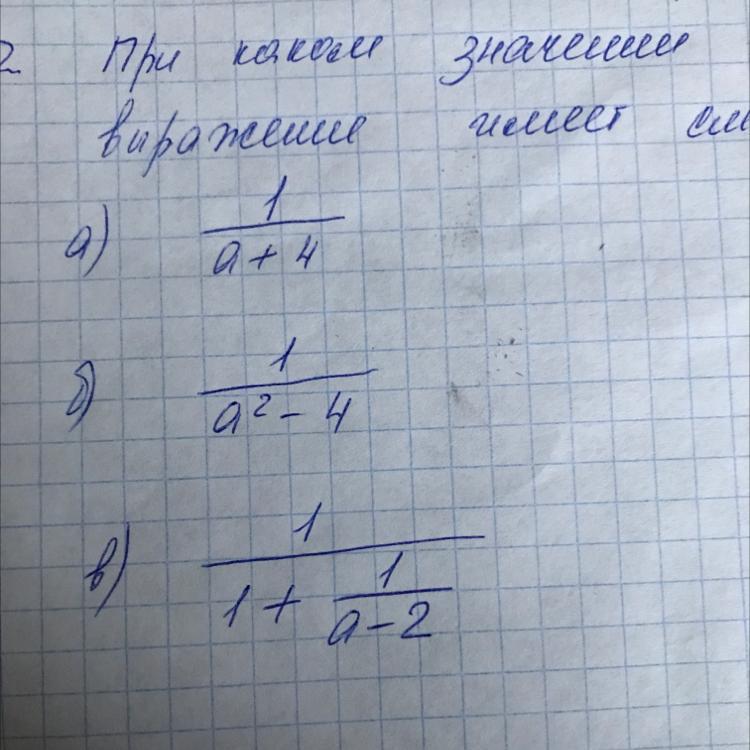 2 При каком значении
выражение имеет
а) 1/(a + 4)
б) 1/(a² - 4)
в) 1/(1 + 1/(a - 2))